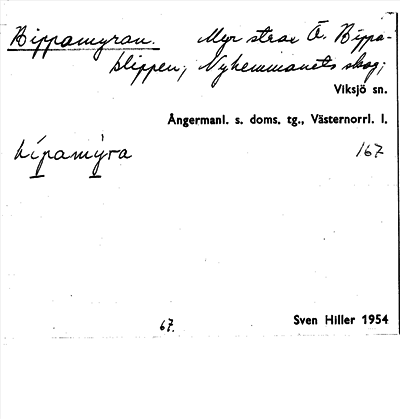 Bippamyran. Myr strax Ö. Bippa-
klippen, Nyhemmanets skog;
Viksjö sn.
Ångermanl. s. doms. tg., Västernorrl. l.
bípamỳra 167
67. Sven Hiller 1954